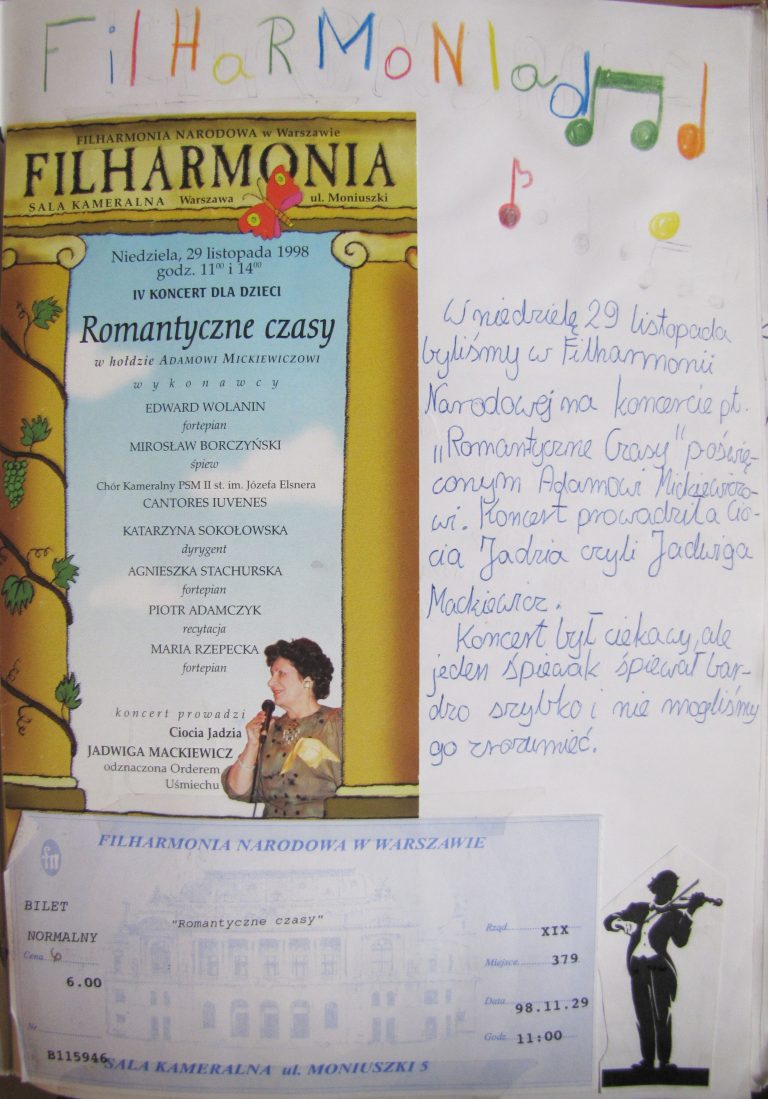 FilHaRMoNIa
FILHARMONIA NARODOWA w Warszawie
FILHARMONIA
SALA KAMERALNA Warszawa ul. Moniuszki
Niedziela, 29 listopada 1998
godz. 11⁰⁰ i 14⁰⁰
IV KONCERT DLA DZIECI
Romantyczne czasy
w hołdzie ADAMOWI MICKIEWICZOWI
wykonawcy
EDWARD WOLANIN
fortepian
MIROSŁAW BORCZYŃSKI
śpiew
Chór Kameralny PSM II st. im. Józefa Elsnera
CANTORES IUVENES
KATARZYNA SOKOŁOWSKA
dyrygent
AGNIESZKA STACHURSKA
fortepian
PIOTR ADAMCZYK
recytacja
MARIA RZEPECKA
fortepian
koncert prowadzi
Ciocia Jadzia
JADWIGA MACKIEWICZ
odznaczona Orderem
Uśmiechu
W niedzielę 29 listopada
byliśmy w Filharmonii
Narodowej na koncercie pt.
„Romantyczne Czasy" poświę-
conym Adamowi Mickiewiczo-
wi. Koncert prowadziła Cio-
cia Jadzia czyli Jadwiga
Mackiewicz.
Koncert był ciekawy, ale
jeden śpiewak śpiewał bar-
dzo szybko i nie mogliśmy
go zrozumieć.
FILHARMONIA NARODOWA W WARSZAWIE
fn
BILET
NORMALNY
"Romantyczne czasy"
Cena 6
6.00
Nr
B115946
Rząd XIX
Miejsce 379
Data 98.11.29
Godz. 11:00
SALA KAMERALNA ul. MONIUSZKI 5